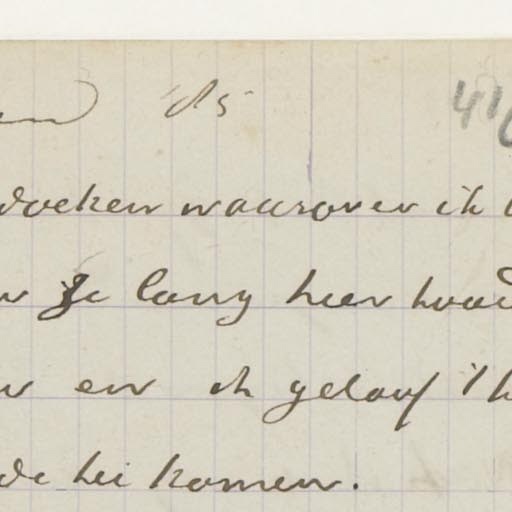 en '85 41
doeken waarover ik
ze lang hier
en ik geloof 't
de hei komen.